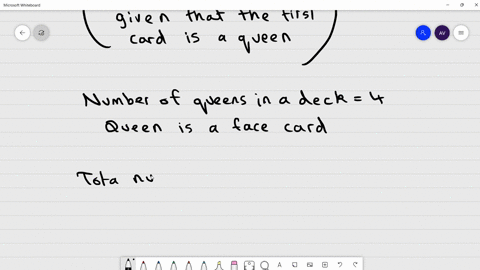 Microsoft Whiteboard
given that the first
card is a queen
AV
Number of queens in a deck = 4
Queen is a face card
Tota nu